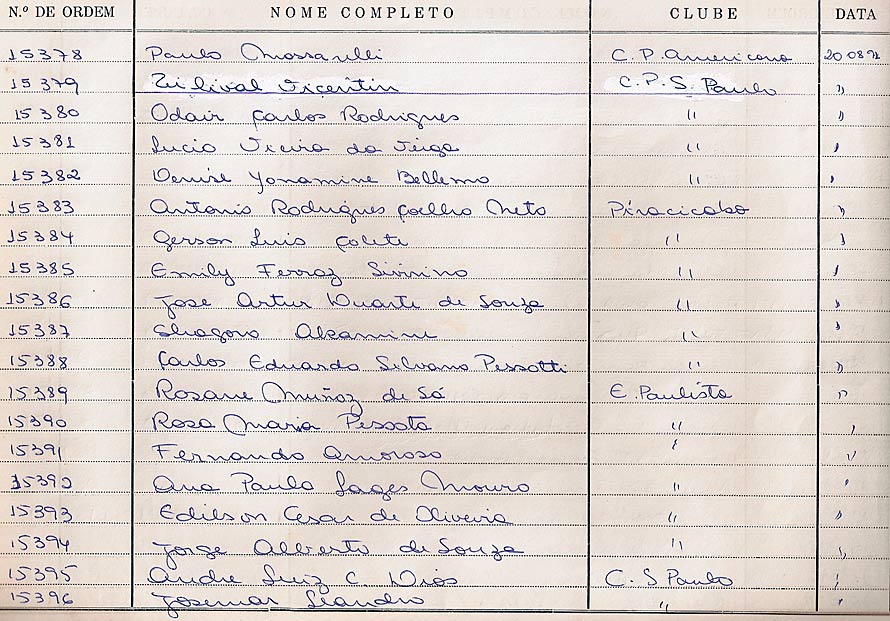 N.º DE ORDEM NOME COMPLETO CLUBE DATA
15378 Paulo Mossarelli C. P. Americano 20 08 92
15379 Vicentin C. P. S. Paulo "
15380 Odair Carlos Rodrigues " "
15381 Lucio Vieira da Veiga " "
15382 Denise Yonamine Bellemo " "
15383 Antonio Rodrigues Coelho Neto Piracicaba "
15384 Gerson Luis " "
15385 Emily Ferraz " "
15386 Jose Artur Duarte de Souza " "
15387 Akamine " "
15388 Carlos Eduardo Silvano Pessotti " "
15389 Rosane Muñoz de Sá E. Paulista "
15390 Rosa Maria Pessota " "
15391 Fernando Amoroso " "
15392 Ana Paula Lages Mouro " "
15393 Edilson Cesar de Oliveira " "
15394 Jorge Alberto de Souza " "
15395 Andre Luiz C. Dias C. S Paulo "
15396 Josemar Leandro " "